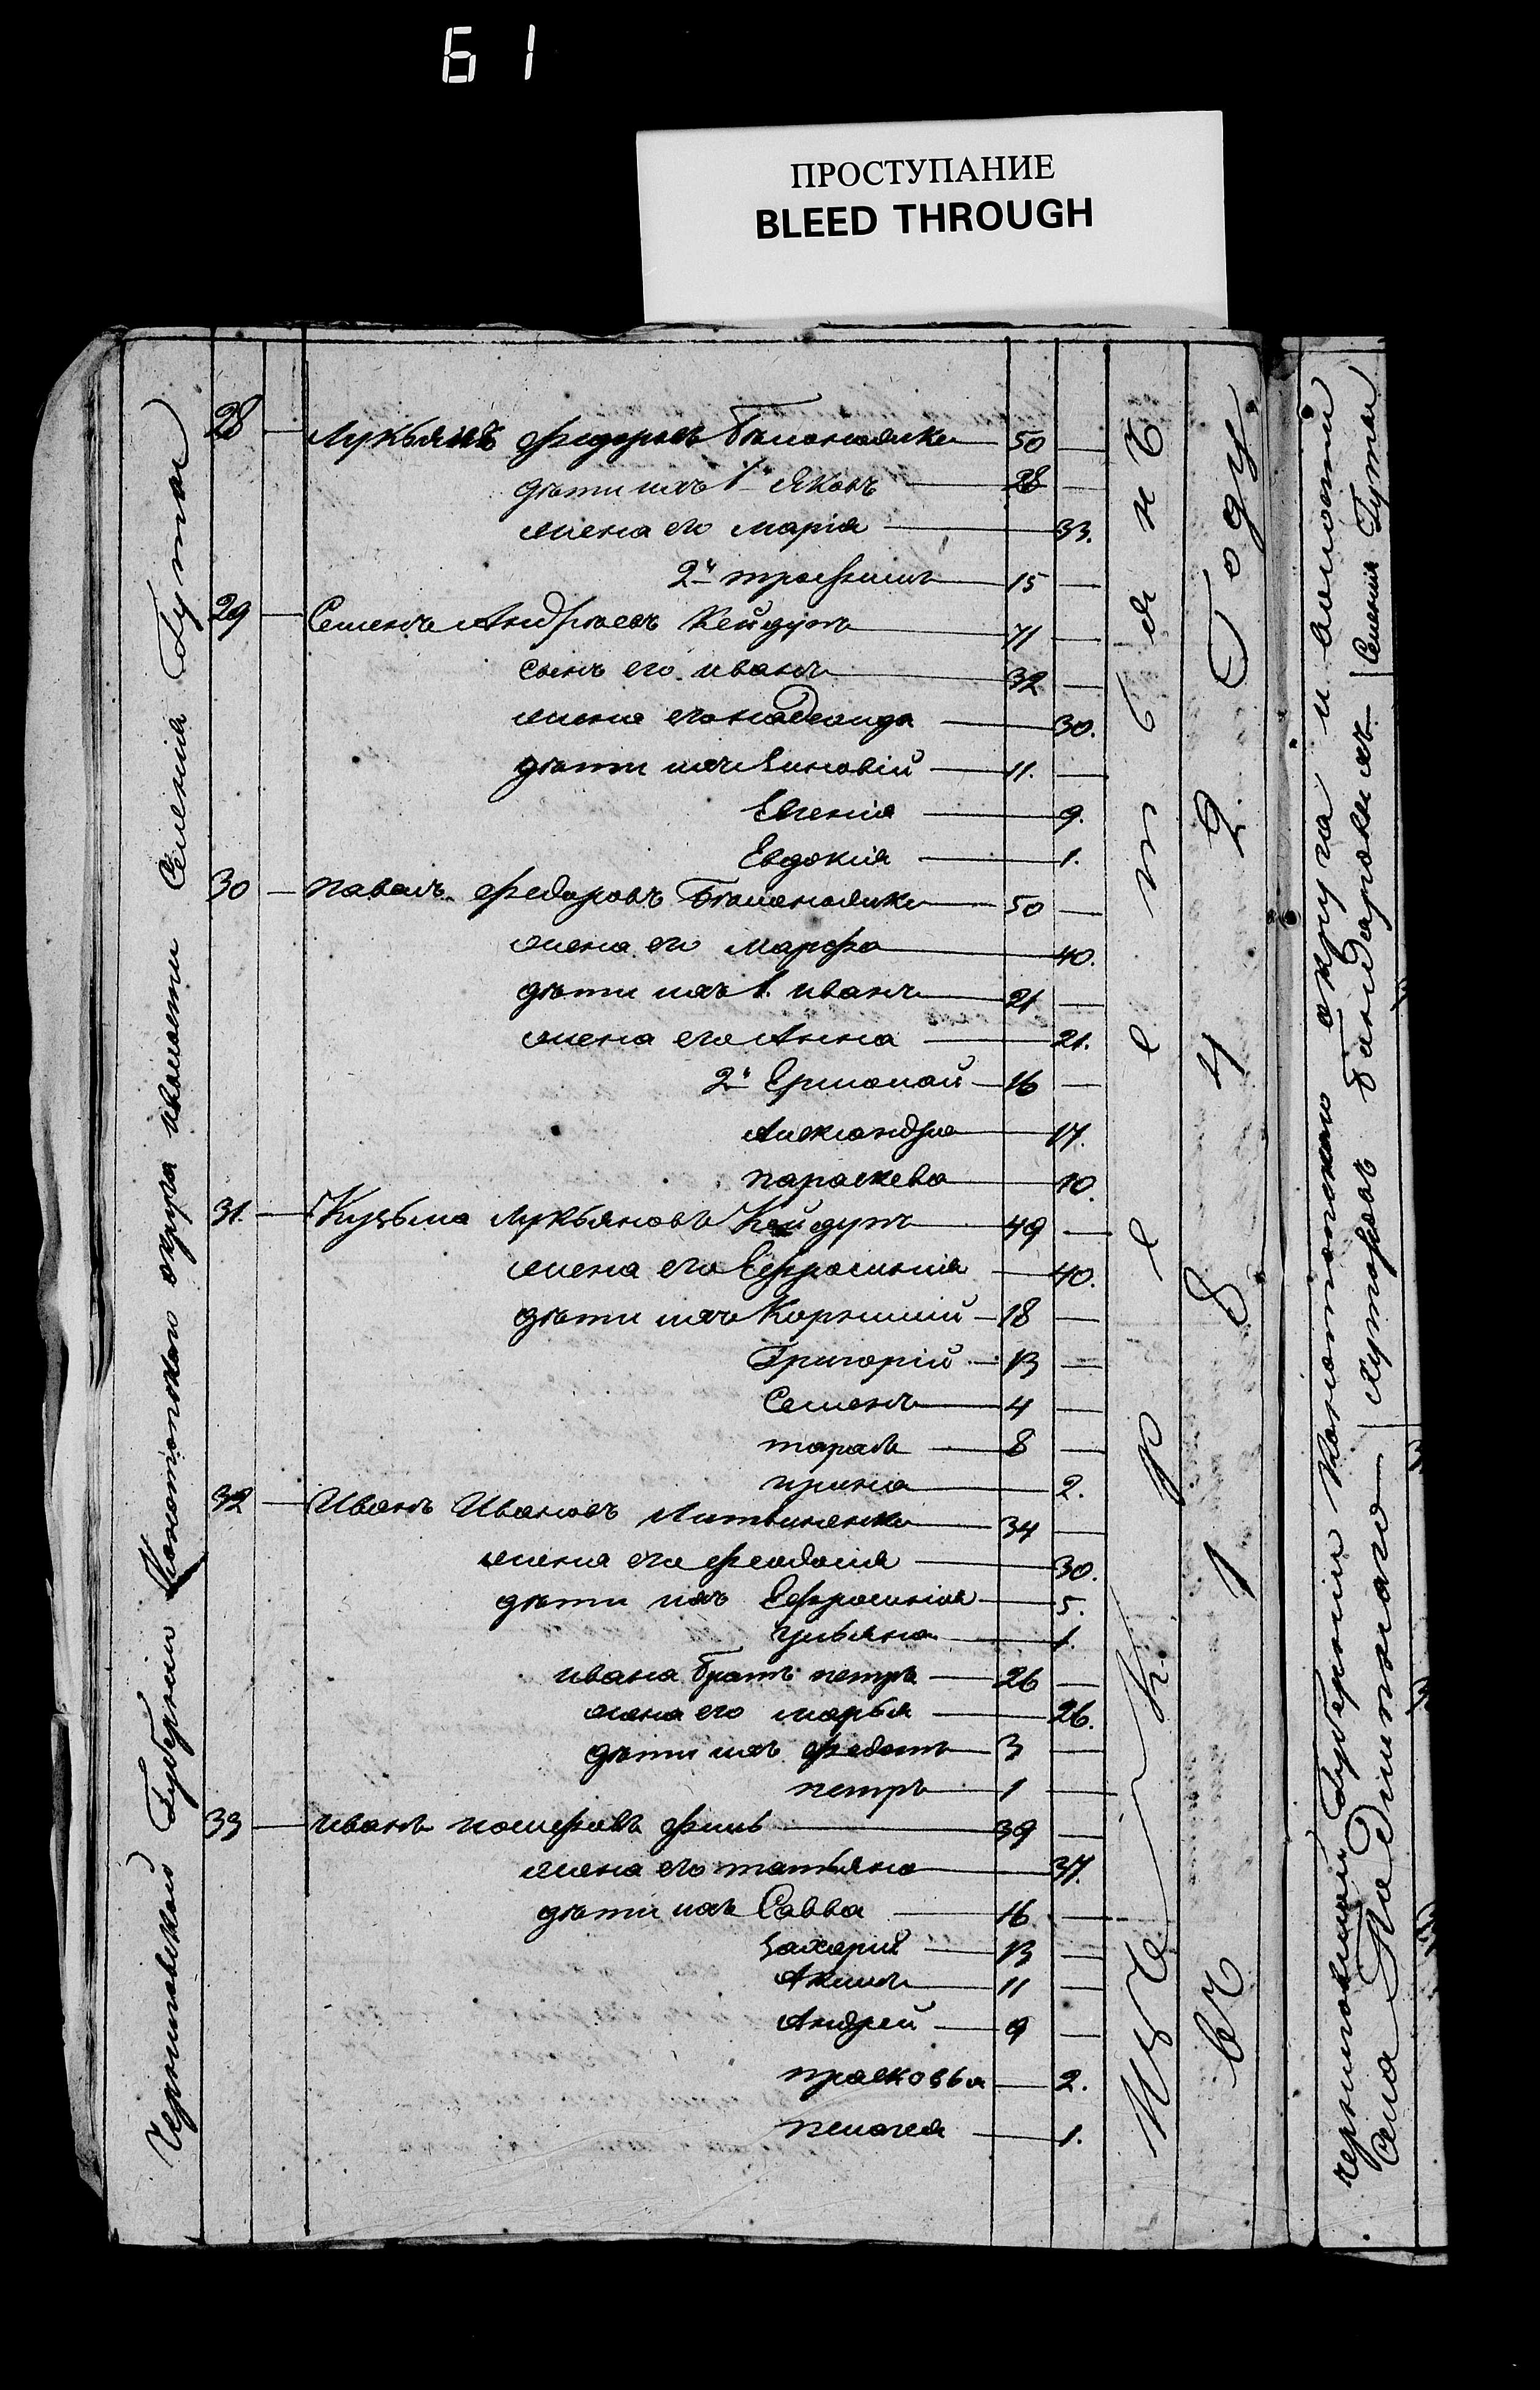 61
ПРОСТУПАНИЕ
BLEED THROUGH
Черниговской Губерніи Конотопского округа и волости Селенія Гуты
28 Лукьянъ Федоровъ 50
дѣти ихъ 1й Яковъ 28
жена его марія 33.
2й трофимъ 15
29 Семенъ Андреевъ Кейдунъ 71
сынъ его иванъ 32
жена его 30.
дѣти ихъ Зиновій 11.
Евгенія 9.
Евдокія 1.
30 павелъ Федоровъ 50
жена его Марфа 40.
дѣти ихъ 1. иванъ 21
жена его Анна 21.
2й Ермолай 16
Александра 17.
параскева 10.
31. Кузьма Лукьяновъ Кейдунъ 49
жена его Ефросинія 40.
дѣти ихъ Корнилій 18
Григорій 13
Семенъ 4
тарасъ 8
ирина 2.
32 Иванъ Ивановъ Литвиненко 34
жена его феодосія 30.
дѣти ихъ Ефросинія 5.
ульяна 1.
ивана братъ петръ 26
жена его марья 26.
дѣти ихъ федотъ 3
петръ 1
33 иванъ 39
жена его татьяна 37.
дѣти ихъ Савва 16
захарій 13
Акимъ 11
Андрей 9
прасковья 2.
пелагея 1.
въ 1842 Году
черниговской Губерніи Конотопского округа и волости
Села | Хуторовъ | Селенія Гуты